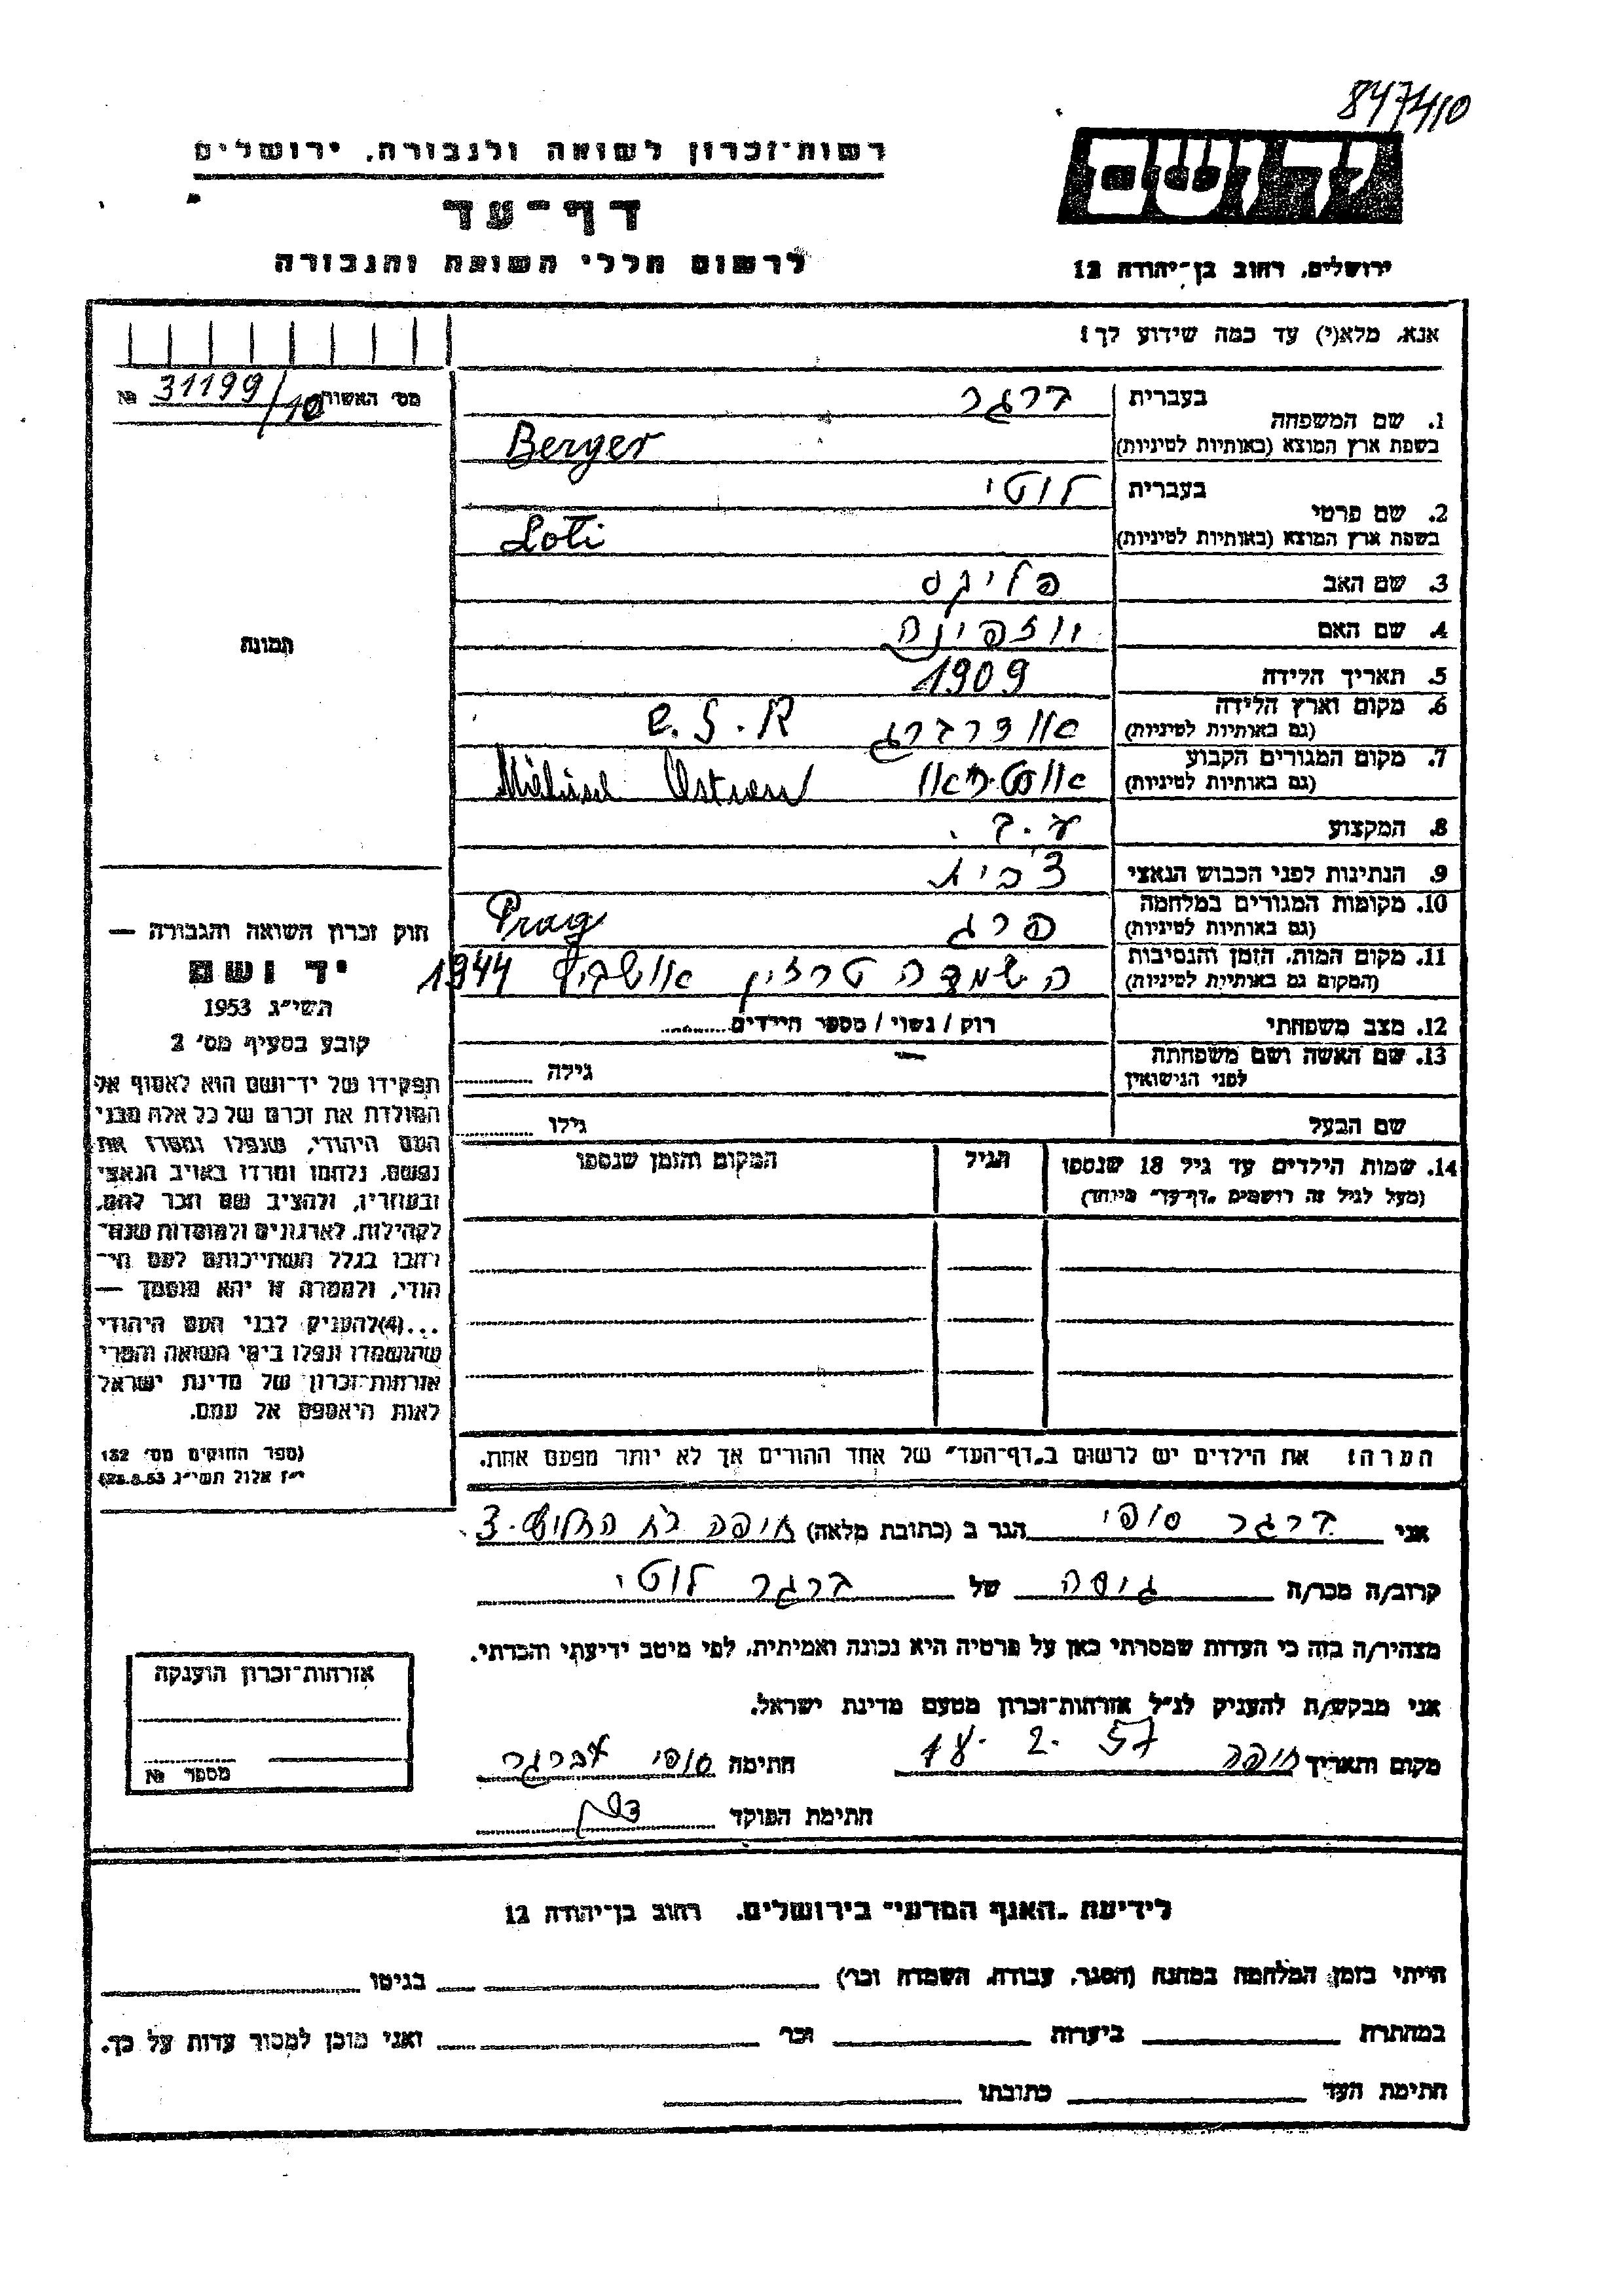 847410
רשות־זכרון לשואה ולגבורה, ירושלים
דף־עד
לרשום חללי השואה והגבורה
יד ושם
ירושלים, רחוב בן־יהודה 12
אנא, מלא(י) עד כמה שידוע לך!
מס׳ האשור 31199/10 №
1. שם המשפחה
בעברית ברגר
בשפת ארץ המוצא (באותיות לטיניות) Berger
2. שם פרטי
בעברית לוטי
בשפת ארץ המוצא (באותיות לטיניות) Loti
3. שם האב פליגס
4. שם האם יוזפינה
5. תאריך הלידה 1909
6. מקום וארץ הלידה
(גם באותיות לטיניות) אודרברג Č.S.R
7. מקום המגורים הקבוע
(גם באותיות לטיניות) Ostrau
8. המקצוע
9. הנתינות לפני הכבוש הנאצי צ׳כית
10. מקומות המגורים במלחמה
(גם באותיות לטיניות) פרג Prag
11. מקום המות, הזמן והנסיבות
(המקום גם באותיות לטיניות) השמדה טרזין אושביץ 1944
12. מצב משפחתי רוק / נשוי / מספר הילדים
13. שם האשה ושם משפחתה
לפני הנישואין — גילה
שם הבעל גילו
14. שמות הילדים עד גיל 18 שנספו הגיל המקום והזמן שנספו
(מעל לגיל זה רושמים „דף־עד״ מיוחד)
הערה: את הילדים יש לרשום ב„דף־העד״ של אחד ההורים אך לא יותר מפעם אחת.
תמונה
חוק זכרון השואה והגבורה —
יד ושם
תשי״ג 1953
קובע בסעיף מס׳ 2
תפקידו של יד־ושם הוא לאסוף אל
המולדת את זכרם של כל אלה מבני
העם היהודי, שנפלו ומסרו את
נפשם, נלחמו ומרדו באויב הנאצי
ובעוזריו, ולהציב שם וזכר להם,
לקהילות, לארגונים ולמוסדות שנח־
רבו בגלל השתייכותם לעם הי־
הודי, ולמטרה זו יהא מוסמך —
...(4)להעניק לבני העם היהודי
שהושמדו ונפלו בימי השואה והמרי
אזרחות־זכרון של מדינת ישראל
לאות היאספם אל עמם.
(ספר החוקים מס׳ 132
י״ז אלול תשי״ג 28.8.53)
אני ברגר סופי הגר ב (כתובת מלאה) חיפה רח החלוץ 3
קרוב/ה מכר/ה גיסה של ברגר לוטי
מצהיר/ה בזה כי העדות שמסרתי כאן על פרטיה היא נכונה ואמיתית, לפי מיטב ידיעתי והכרתי.
אני מבקש/ת להעניק לנ״ל אזרחות־זכרון מטעם מדינת ישראל.
מקום ותאריך חיפה 18. 2. 57 חתימה סופי ברגר
חתימת הפוקד
אזרחות־זכרון הוענקה
מספר №
לידיעת „האגף המדעי״ בירושלים, רחוב בן־יהודה 12
הייתי בזמן המלחמה במחנה (הסגר, עבודה, השמדה וכו׳) בגיטו
במחתרת ביערות וכו׳ ואני מוכן למסור עדות על כך.
חתימת העד כתובתו